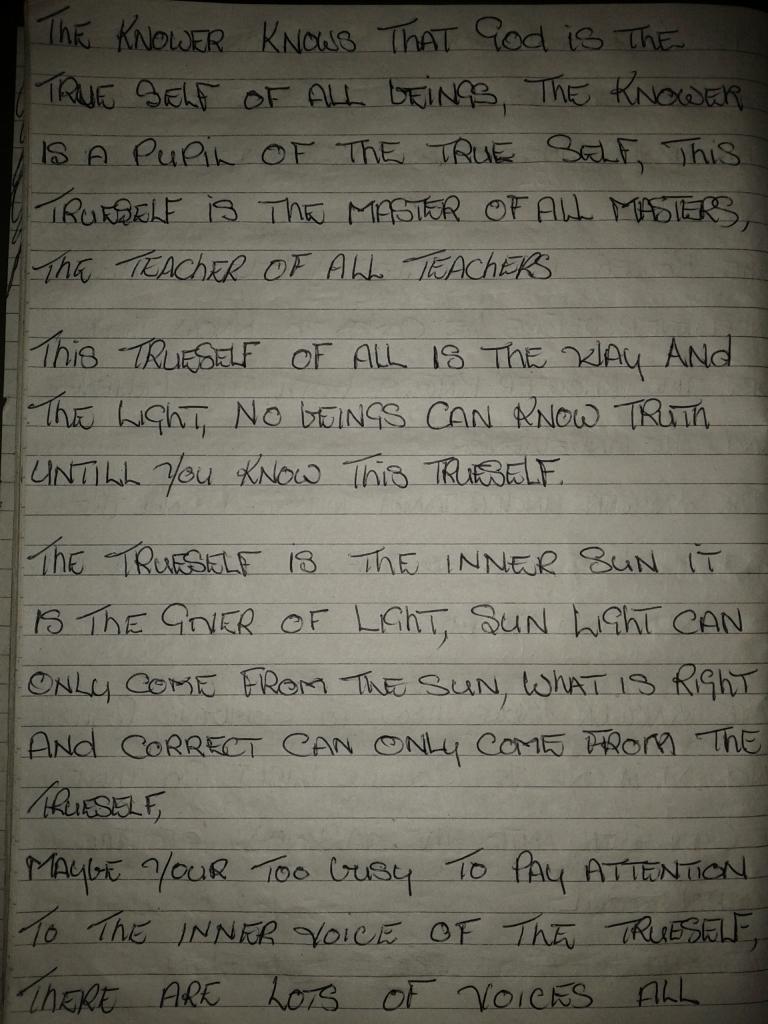 THE KNOWER KNOWS THAT God is THE
TRUE SELF OF ALL bEINGS, THE KNOWER
IS A PUPIL OF THE TRUE SELF, THIS
TRUESELF is THE MASTER OF ALL MASTERS,
THE TEACHER OF ALL TEACHERS
THIS TRUESELF OF ALL IS THE WAY AND
THE LIGHT, NO bEINGS CAN KNOW TRUTH
UNTILL YOU KNOW THIS TRUESELF.
THE TRUESELF IS THE INNER SUN IT
IS THE GIVER OF LIGHT, SUN LIGHT CAN
ONLY COME FROM THE SUN, WHAT IS RIGHT
AND CORRECT CAN ONLY COME FROM THE
TRUESELF,
MAYbE YOUR TOO bUSY TO PAY ATTENTION
TO THE INNER VOICE OF THE TRUESELF,
THERE ARE LOTS OF VOICES ALL